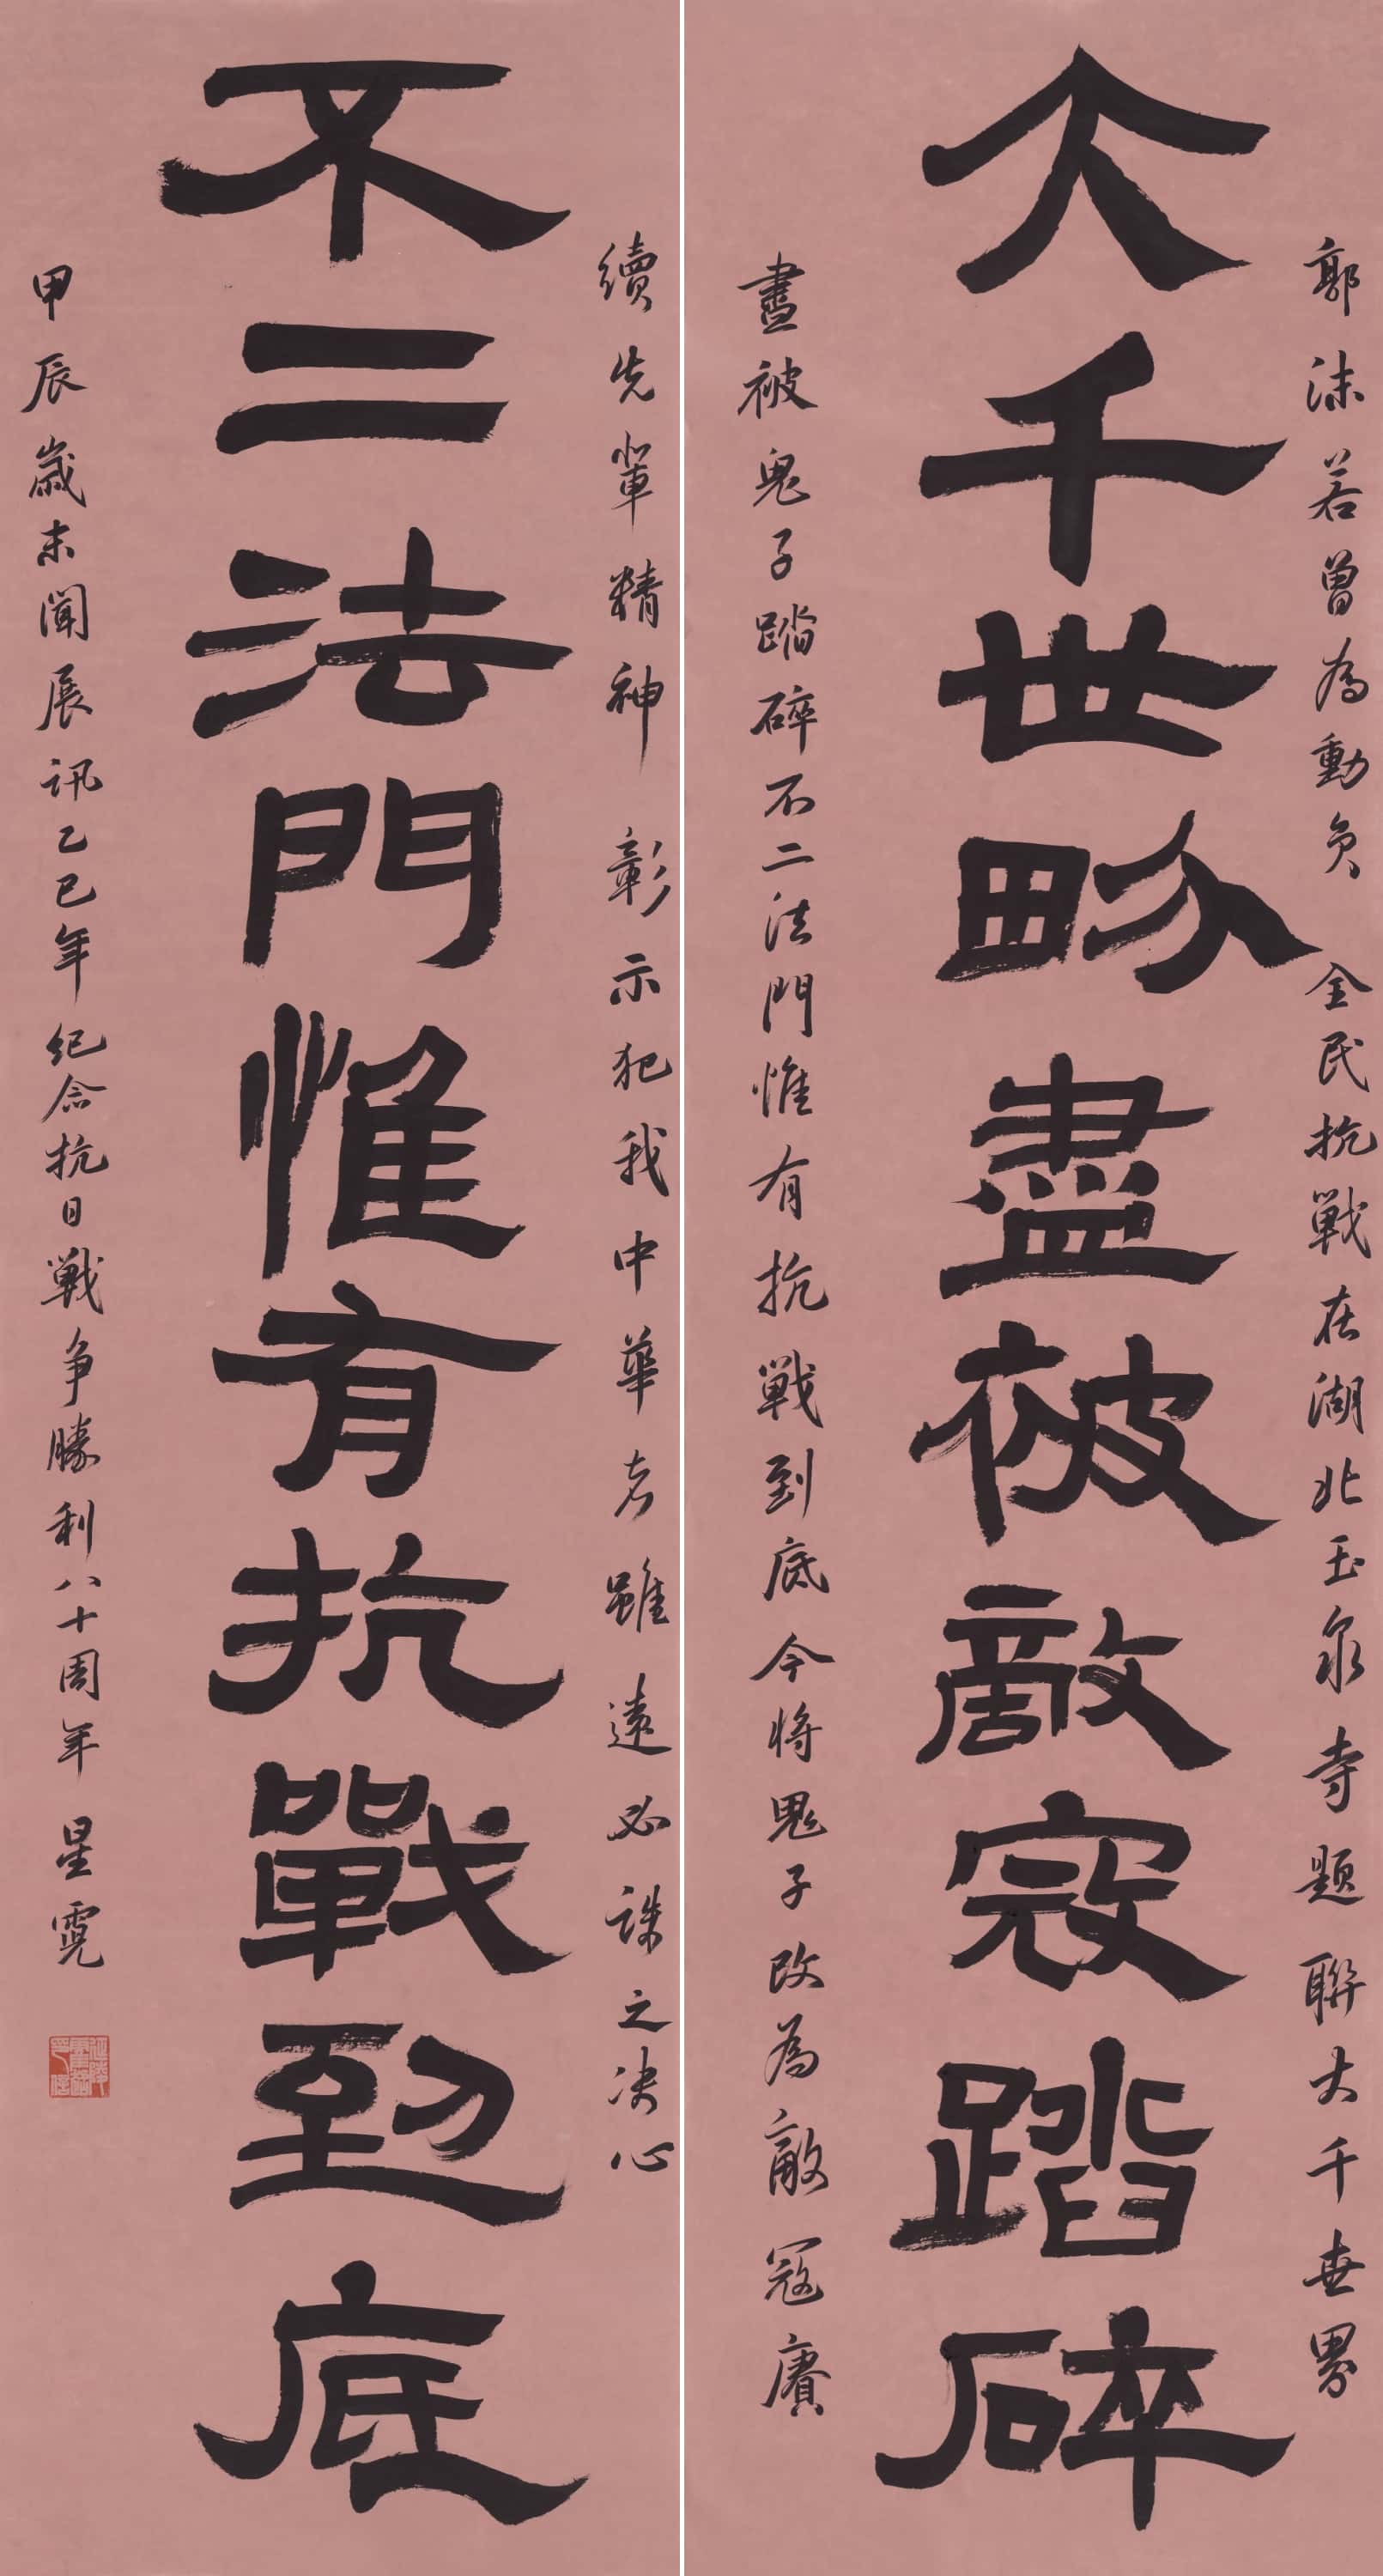 郭沫若曾為動員全民抗戰在湖北玉泉寺題聯大千世界
大千世畍盡被敵寇踏碎
盡被鬼子踏碎不二法門惟有抗戰到底今將鬼子改為敵寇賡
續先輩精神彰示犯我中華者雖遠必誅之决心
不二法門惟有抗戰到底
甲辰歲末聞展訊乙巳年紀念抗日戰争勝利八十周年 星霓